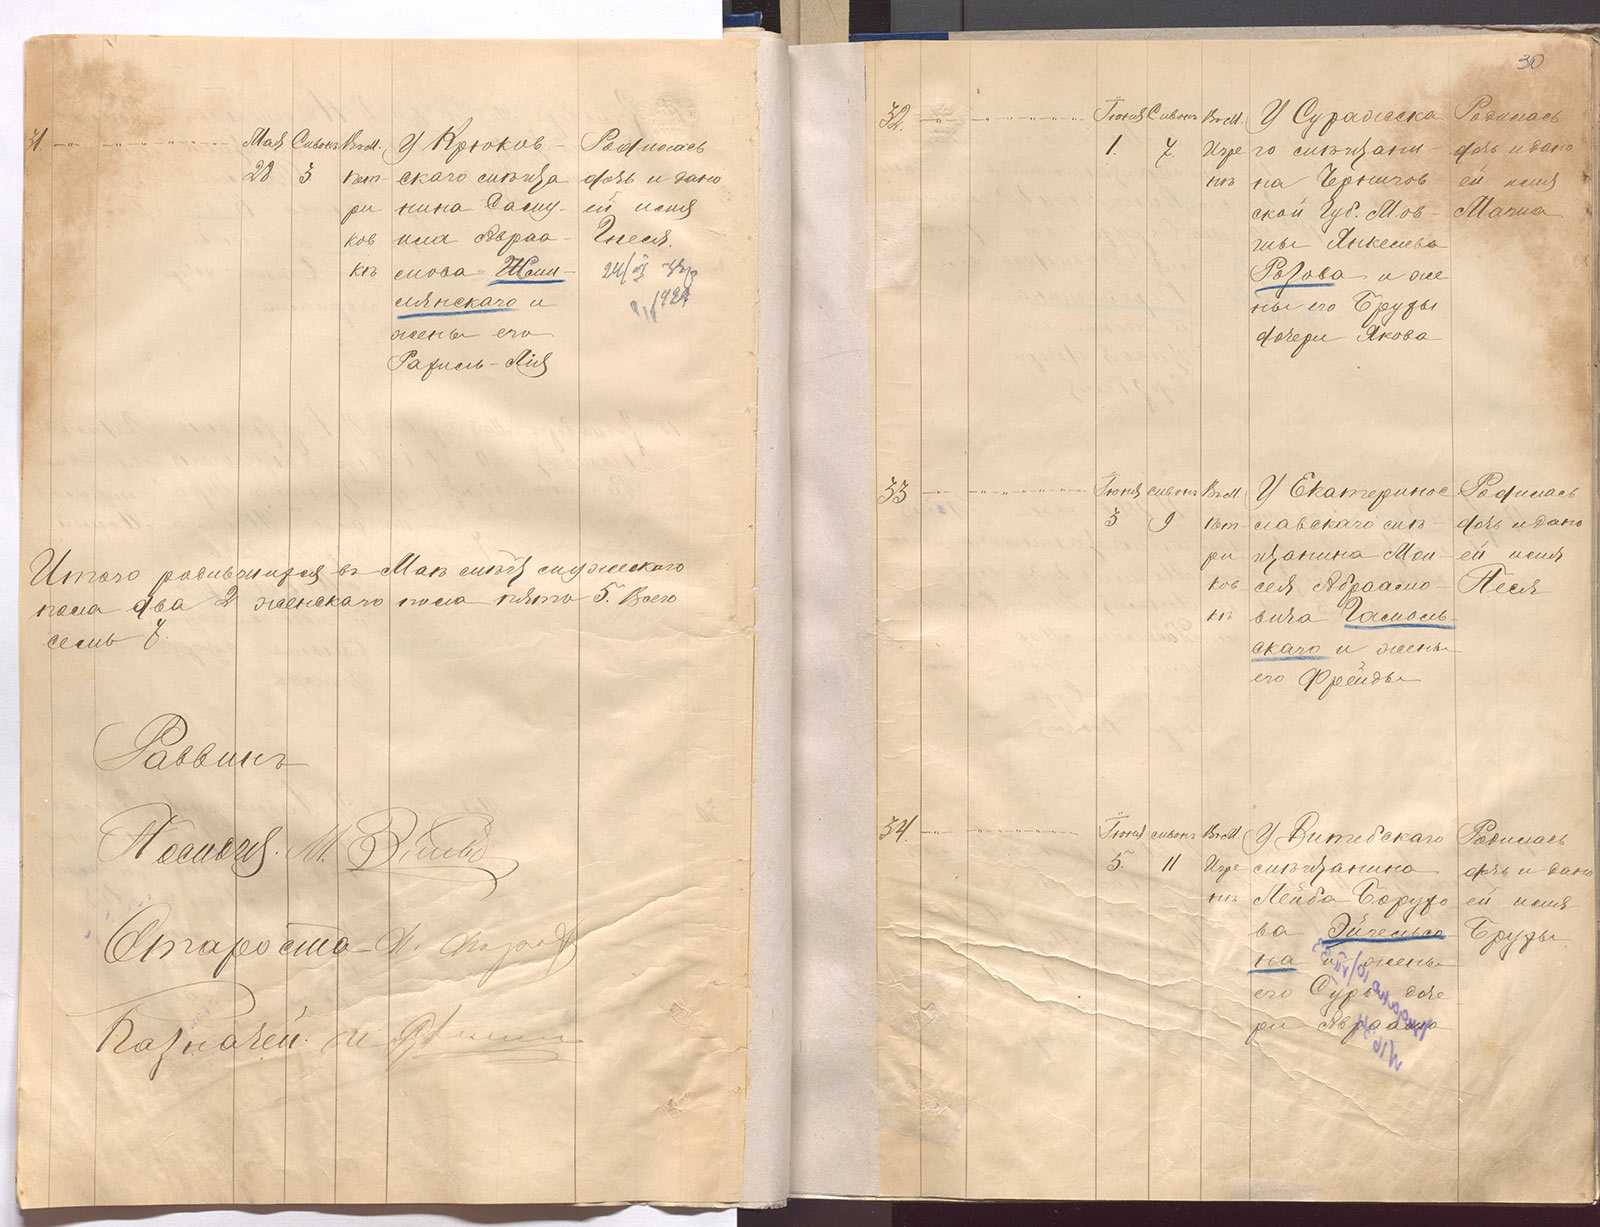 31.
Мая Сивонъ Въ М.
28 3 Пет-
ри
ков
кѣ
У Крюков-
скаго мѣща
нина Саму-
ила Авраа-
мова
лянскаго и
жены его
Рахиль-Лія
Родилась
дочь и дано
ей имя
Гнеся.
1924
Итого родившихся въ Маѣ мужескаго
пола два 2 женскаго пола пять 5. Всего
семь 7.
Раввинъ
М.
Староста
Казначей.
30
32.
Іюня Сивонъ Въ М.
1. 7. Игре
нѣ
У Суражска
го мѣщани-
на Чернигов
ской Губ. Мов-
ши Янкелева
Розова и же
ны его Бруды
дочери Якова
Родилась
дочь и дано
ей имя
33
Іюня сивонъ Въ М
3 9 Пет-
ри
ков
кѣ
У Екатеринос
лавскаго мѣ-
щанина Мои-
сея Абрамо-
вича
скаго и жены
его Фрейды
Родилась
дочь и дано
ей имя
Песя
34.
Іюня сивонъ Въ М
5. 11 Игре
нѣ
У Витебскаго
мѣщанина
Лейба Борухо
ва
на и жены
его Суры доче-
ри Авраама
Родилась
дочь и дано
ей имя
Бруды.